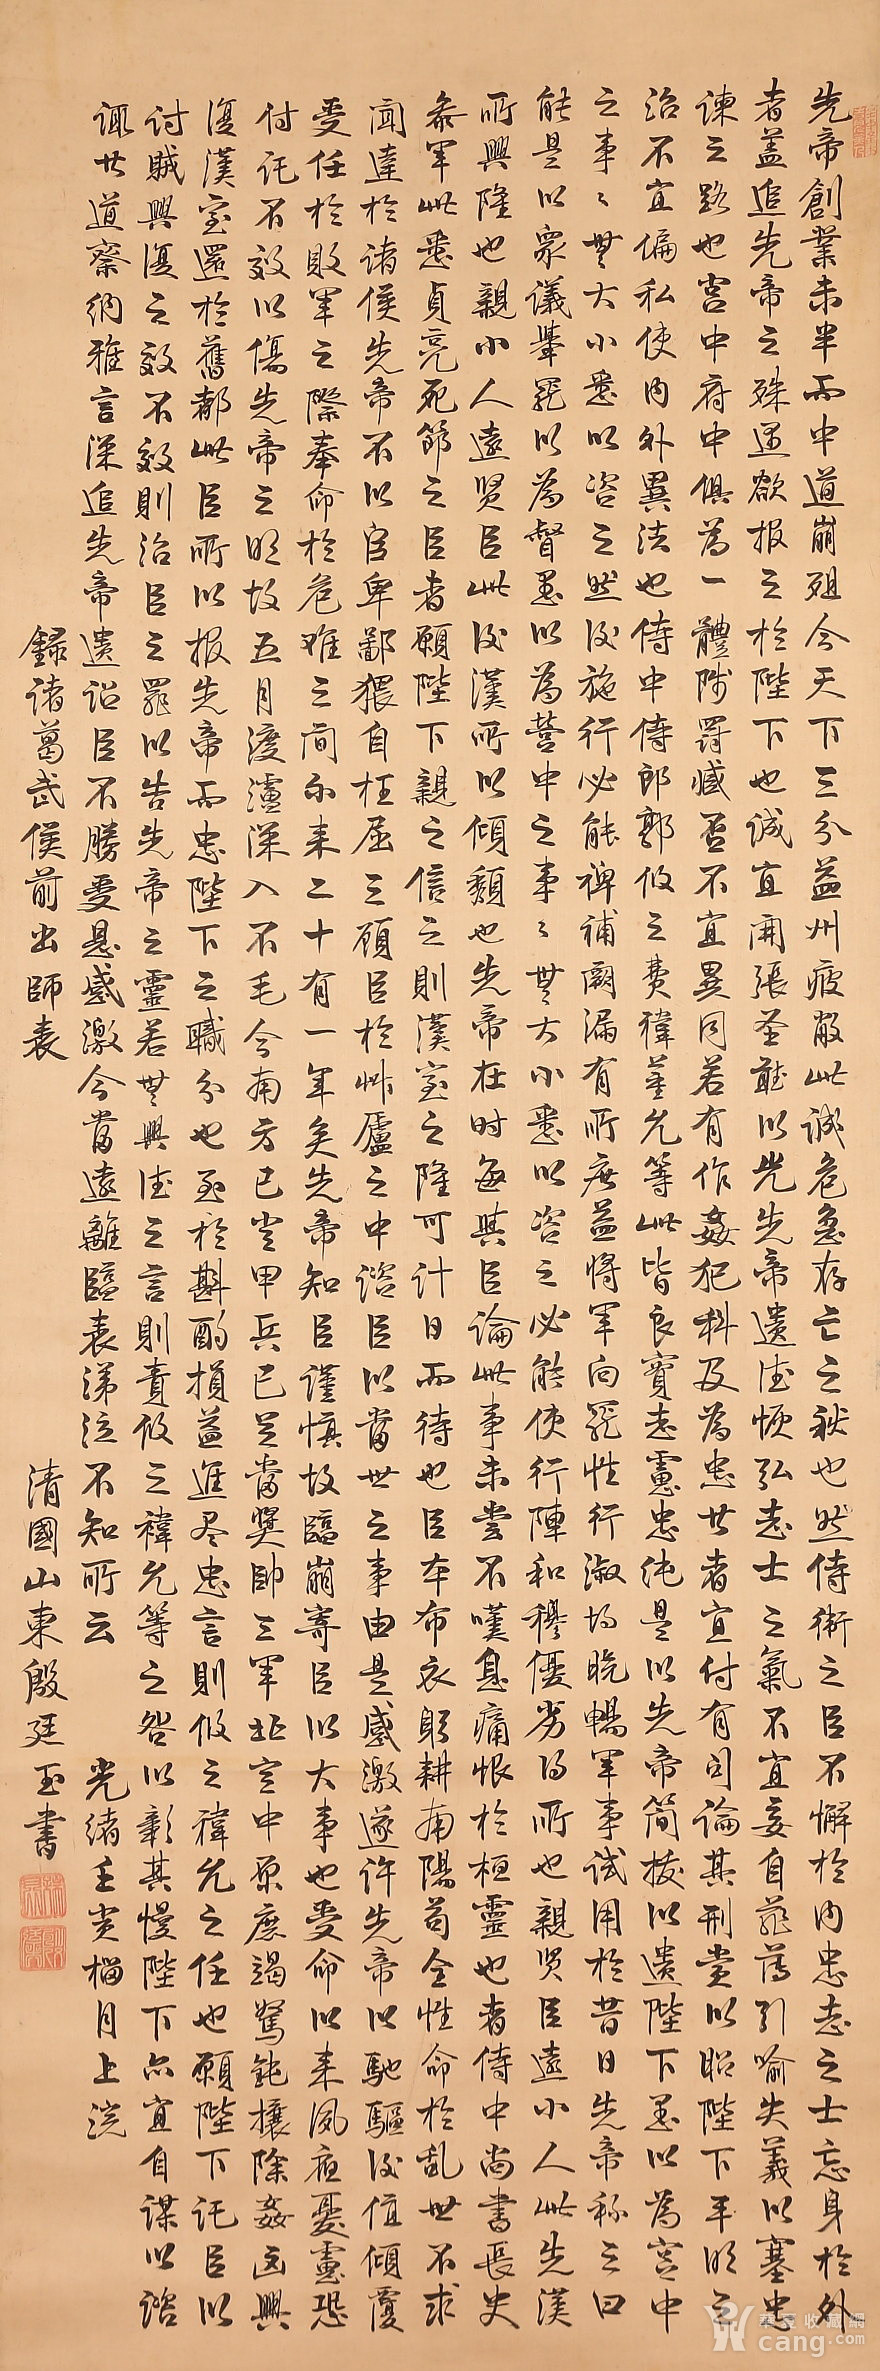 先帝創業未半而中道崩殂今天下三分益州疲敝此誠危急存亡之秋也然侍衛之臣不懈於內忠志之士忘身於外
者蓋追先帝之殊遇欲報之於陛下也誠宜開張聖聽以光先帝遺德恢弘志士之氣不宜妄自菲薄引喻失義以塞忠
諫之路也宮中府中俱為一體陟罰臧否不宜異同若有作姦犯科及為忠善者宜付有司論其刑賞以昭陛下平明之
治不宜偏私使內外異法也侍中侍郎郭攸之費禕董允等此皆良實志慮忠純是以先帝簡拔以遺陛下愚以為宮中
之事〻無大小悉以咨之然後施行必能裨補闕漏有所廣益將軍向寵性行淑均曉暢軍事試用於昔日先帝稱之曰
能是以眾議舉寵以為督愚以為營中之事〻無大小悉以咨之必能使行陣和穆優劣得所也親賢臣遠小人此先漢
所興隆也親小人遠賢臣此後漢所以傾頹也先帝在時每與臣論此事未嘗不嘆息痛恨於桓靈也者侍中尚書長史
參軍此悉貞亮死節之臣者願陛下親之信之則漢室之隆可計日而待也臣本布衣躬耕南陽苟全性命於亂世不求
聞達於諸侯先帝不以臣卑鄙猥自枉屈三顧臣於艸廬之中諮臣以當世之事由是感激遂許先帝以馳驅後值傾覆
受任於敗軍之際奉命於危難之間爾來二十有一年矣先帝知臣謹慎故臨崩寄臣以大事也受命以來夙夜憂慮恐
付託不效以傷先帝之明故五月渡瀘深入不毛今南方已定甲兵已足當獎帥三軍北定中原庶竭駑鈍攘除姦凶興
復漢室還於舊都此臣所以报先帝而忠陛下之職分也至於斟酌損益進尽忠言則攸之禕允之任也願陛下託臣以
討賊興復之效不效則治臣之罪以告先帝之靈若無興德之言則責攸之禕允等之咎以彰其慢陛下亦宜自謀以諮
諏善道察納雅言深追先帝遺詔臣不勝受恩感激今當遠離臨表涕泣不知所云 光緒壬寅榴月上浣
錄諸葛武侯前出師表 清國山東殷廷玉書
華夏收藏網
cang.com